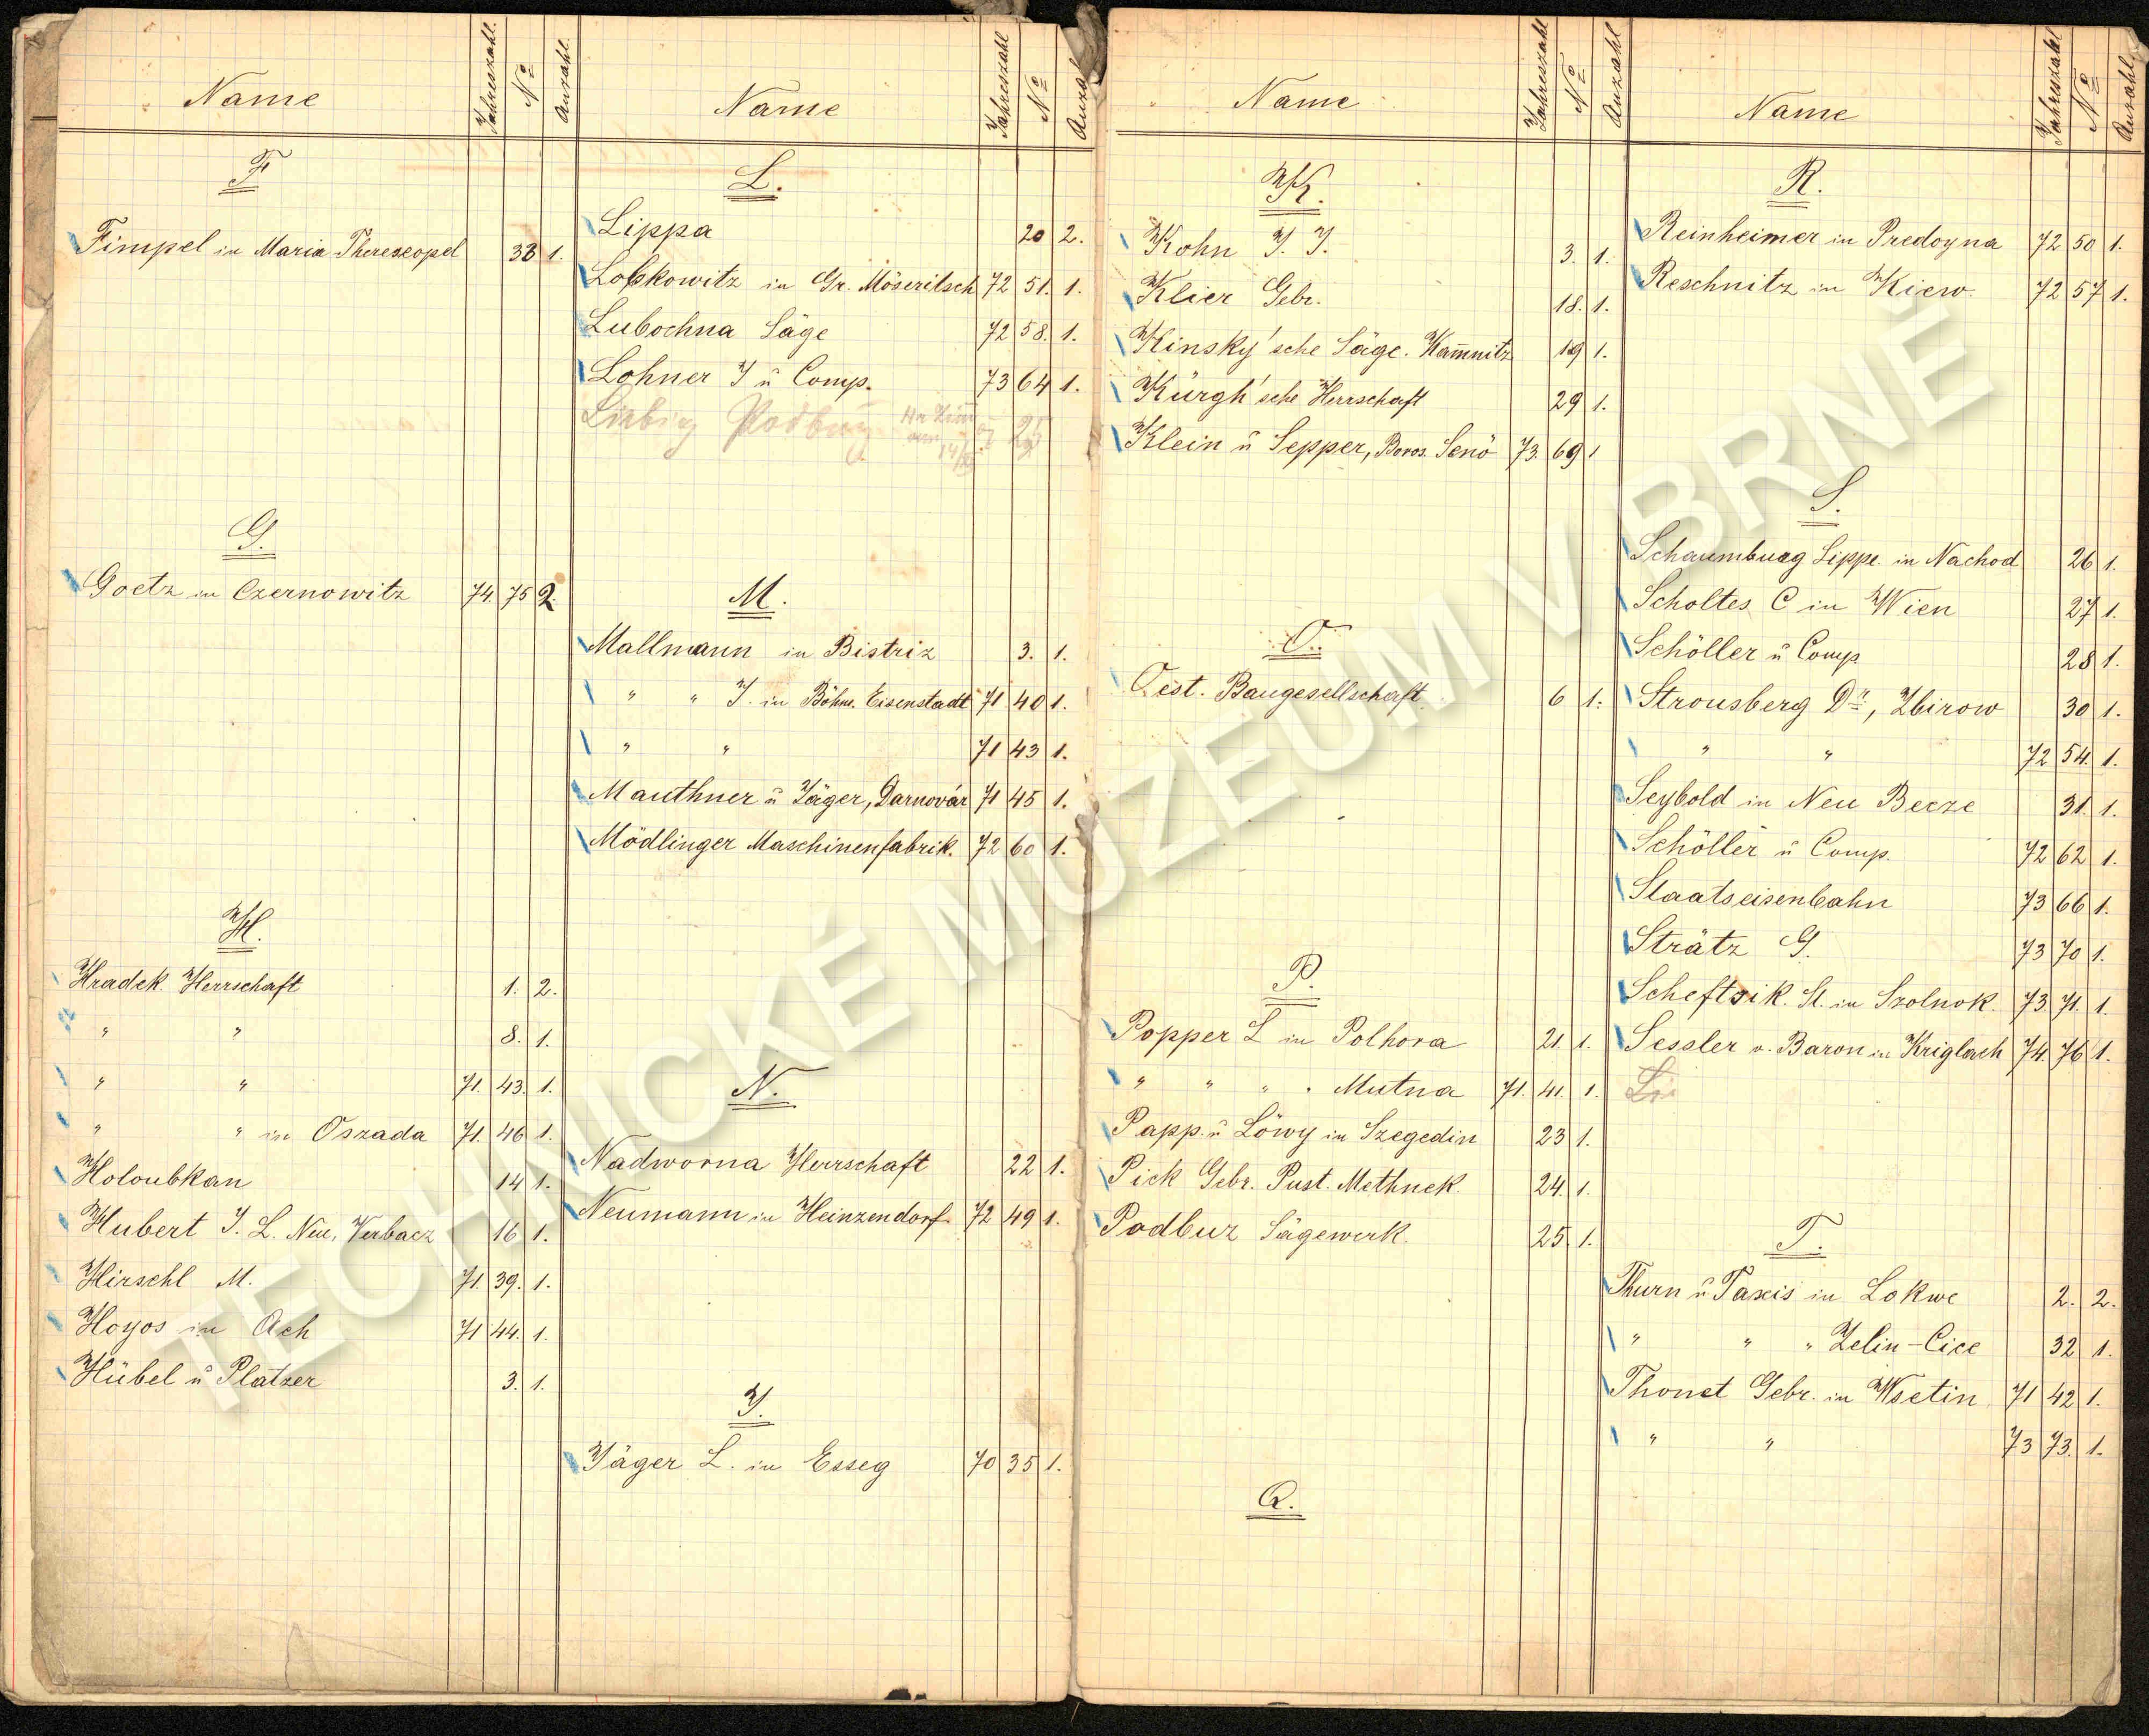 Name Jahreszahl. No Anzahl.
F
Fimpel in Maria Theresopel 33 1.
G.
Goetz in Czernowitz 74. 75 2.
H.
Hradek Herrschaft 1. 2.
" " 8. 1.
" " 71. 43. 1.
" " in Oszada 71. 46 1.
Holoubkau 14 1.
Hubert J. L. Neu, Verbacz 16 1.
Hirschl M. 71. 39. 1.
Hoyos in Ach 71 44. 1.
Hübel u Platzer 3. 1.
Name Jahreszahl No Anzahl
L.
Lippa 20 2.
Lobkowitz in Gr. Möseritsch 72 51. 1.
Lubochna Säge 72 58. 1.
Lohner J u Comp. 73 64 1.
Liebig Podbuz 25
M.
Mallmann in Bistriz 3. 1.
" " J. in Böhm. Eisenstadt 71 40 1.
" " 71 43 1.
Mauthner u Jäger, Darnovár 71 45 1.
Mödlinger Maschinenfabrik. 72 60 1.
N.
Nadworna Herrschaft 22 1.
Neumann in Heinzendorf 72 49 1.
J.
Jäger L. in Esseg 70 35 1.
Name Jahreszahl No Anzahl
K.
Kohn J. J. 3. 1.
Klier Gebr. 18. 1.
Kinsky'sche Säge. Kam̄nitz 19 1.
Kürgh'sche Herrschaft 29 1.
Klein u Sepper, Boros. Senö 73. 69 1
O.
Oest. Baugesellschaft. 6 1.
P.
Popper L in Polhora 21. 1.
" " " " Mutna 71. 41. 1.
Papp. u Löwy in Szegedin 23 1.
Pick Gebr. Pust. Methnek. 24. 1.
Podbuz Sägewerk. 25. 1.
Q.
Name Jahreszahl No Anzahl
R.
Reinheimer in Predoyna 72 50 1.
Reschnitz in Kiew. 72 57 1.
S.
Schaumburg Lippe. in Nachod 26 1.
Scholtes C in Wien 27 1.
Schöller u Comp 28 1.
Strousberg Dr, Zbirow 30 1.
" " 72 54. 1.
Seybold in Neu Becze 31. 1.
Schöller u Comp. 72 62 1.
Staatseisenbahn 73 66 1.
Strätz G. 73 70 1.
Scheftsik. St. in Szolnok. 73. 71. 1.
Sessler v. Baron in Kriglach 74. 76 1.
T.
Thurn u Taxis in Lokwe 2. 2.
" " " Zelin-Cice 32 1.
Thonet Gebr. in Wsetin 71 42 1.
" " 73 73. 1.
TECHNICKÉ MUZEUM V BRNĚ